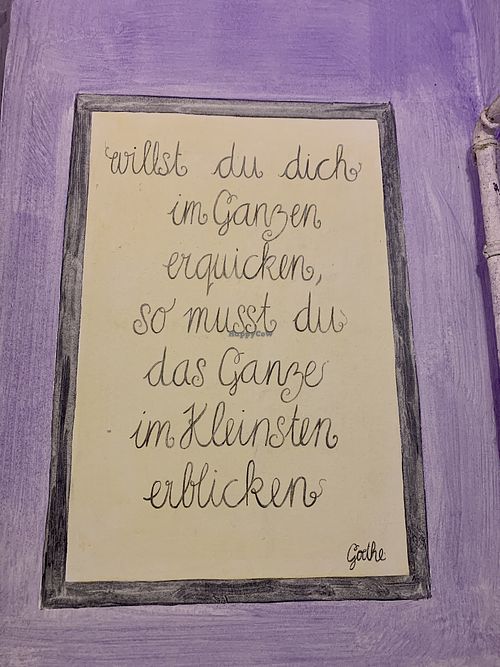 willst du dich
im Ganzen
erquicken,
so musst du
HappyCow
das Ganze
im Kleinsten
erblicken
Goethe